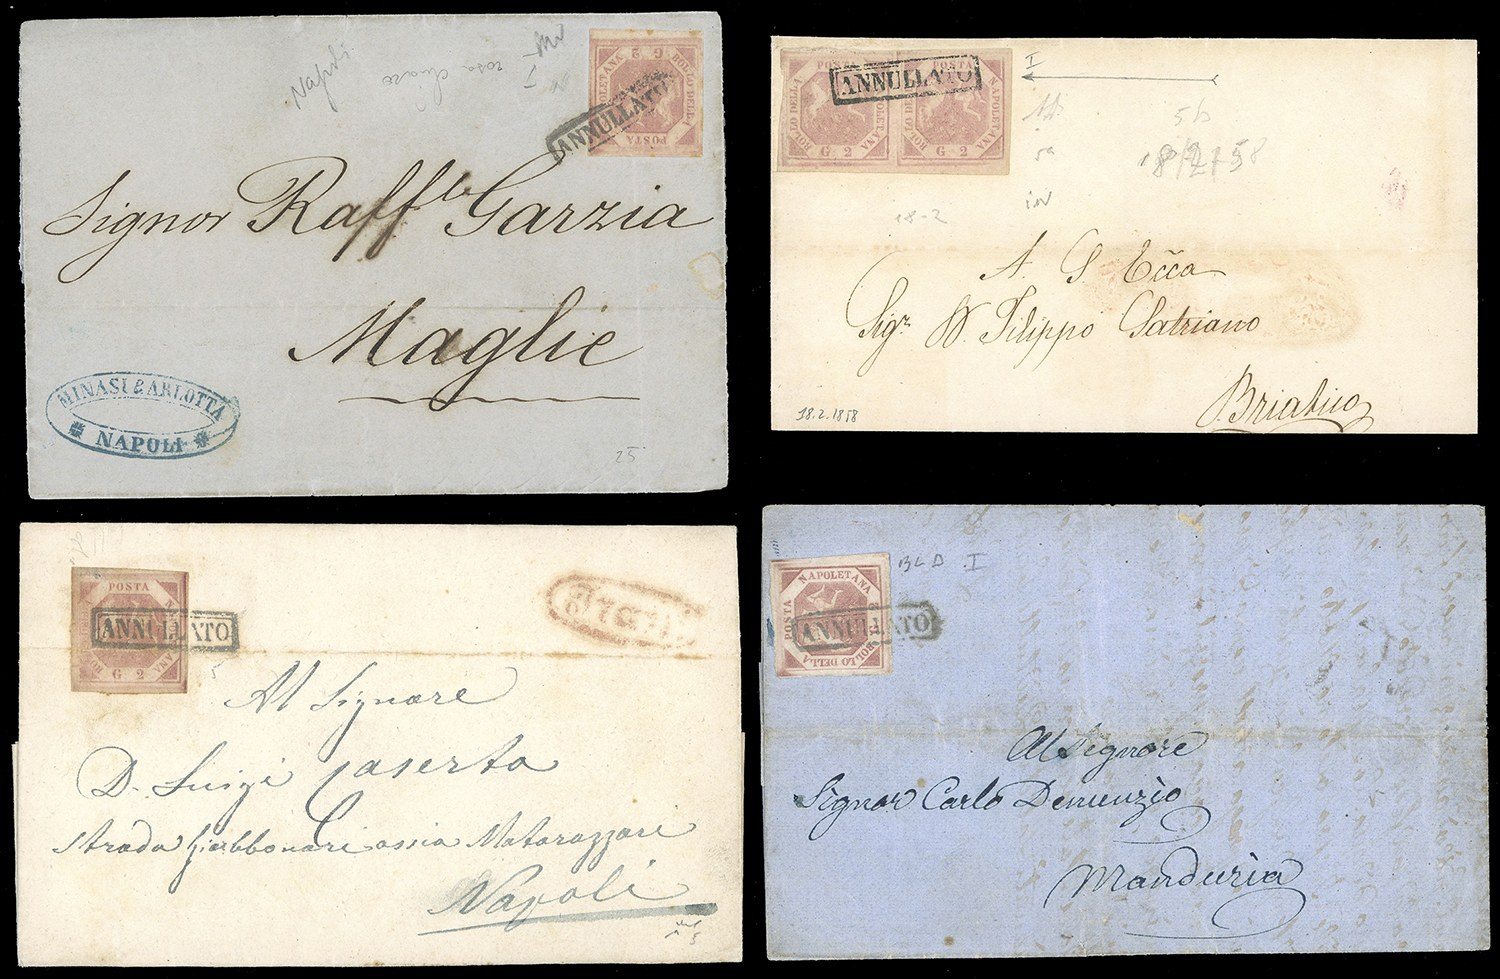 Napoli
rosa chiaro
I
BOLLO DELLA
POSTA
G. 2
ANNULLATO
Signor Raff.le Garzia
Maglie
MINASI & ARLOTTA
NAPOLI
25
POSTA
NAPOLETANA
BOLLO DELLA
G 2
POSTA
NAPOLETANA
BOLLO DELLA
G 2
ANNULLATO
I
5b
18/2/58
18-2
in
A S. Ecca
Sigr D. Filippo Satriano
Briatico
18.2.1858
POSTA
G 2
ANNULLATO
5
Al Signore
D. Luigi Caserta
Napoli
POSTA
NAPOLETANA
BOLLO DELLA
ANNULLATO
BLD I
Al Signore
Signor Carlo Demunzio
Manduria